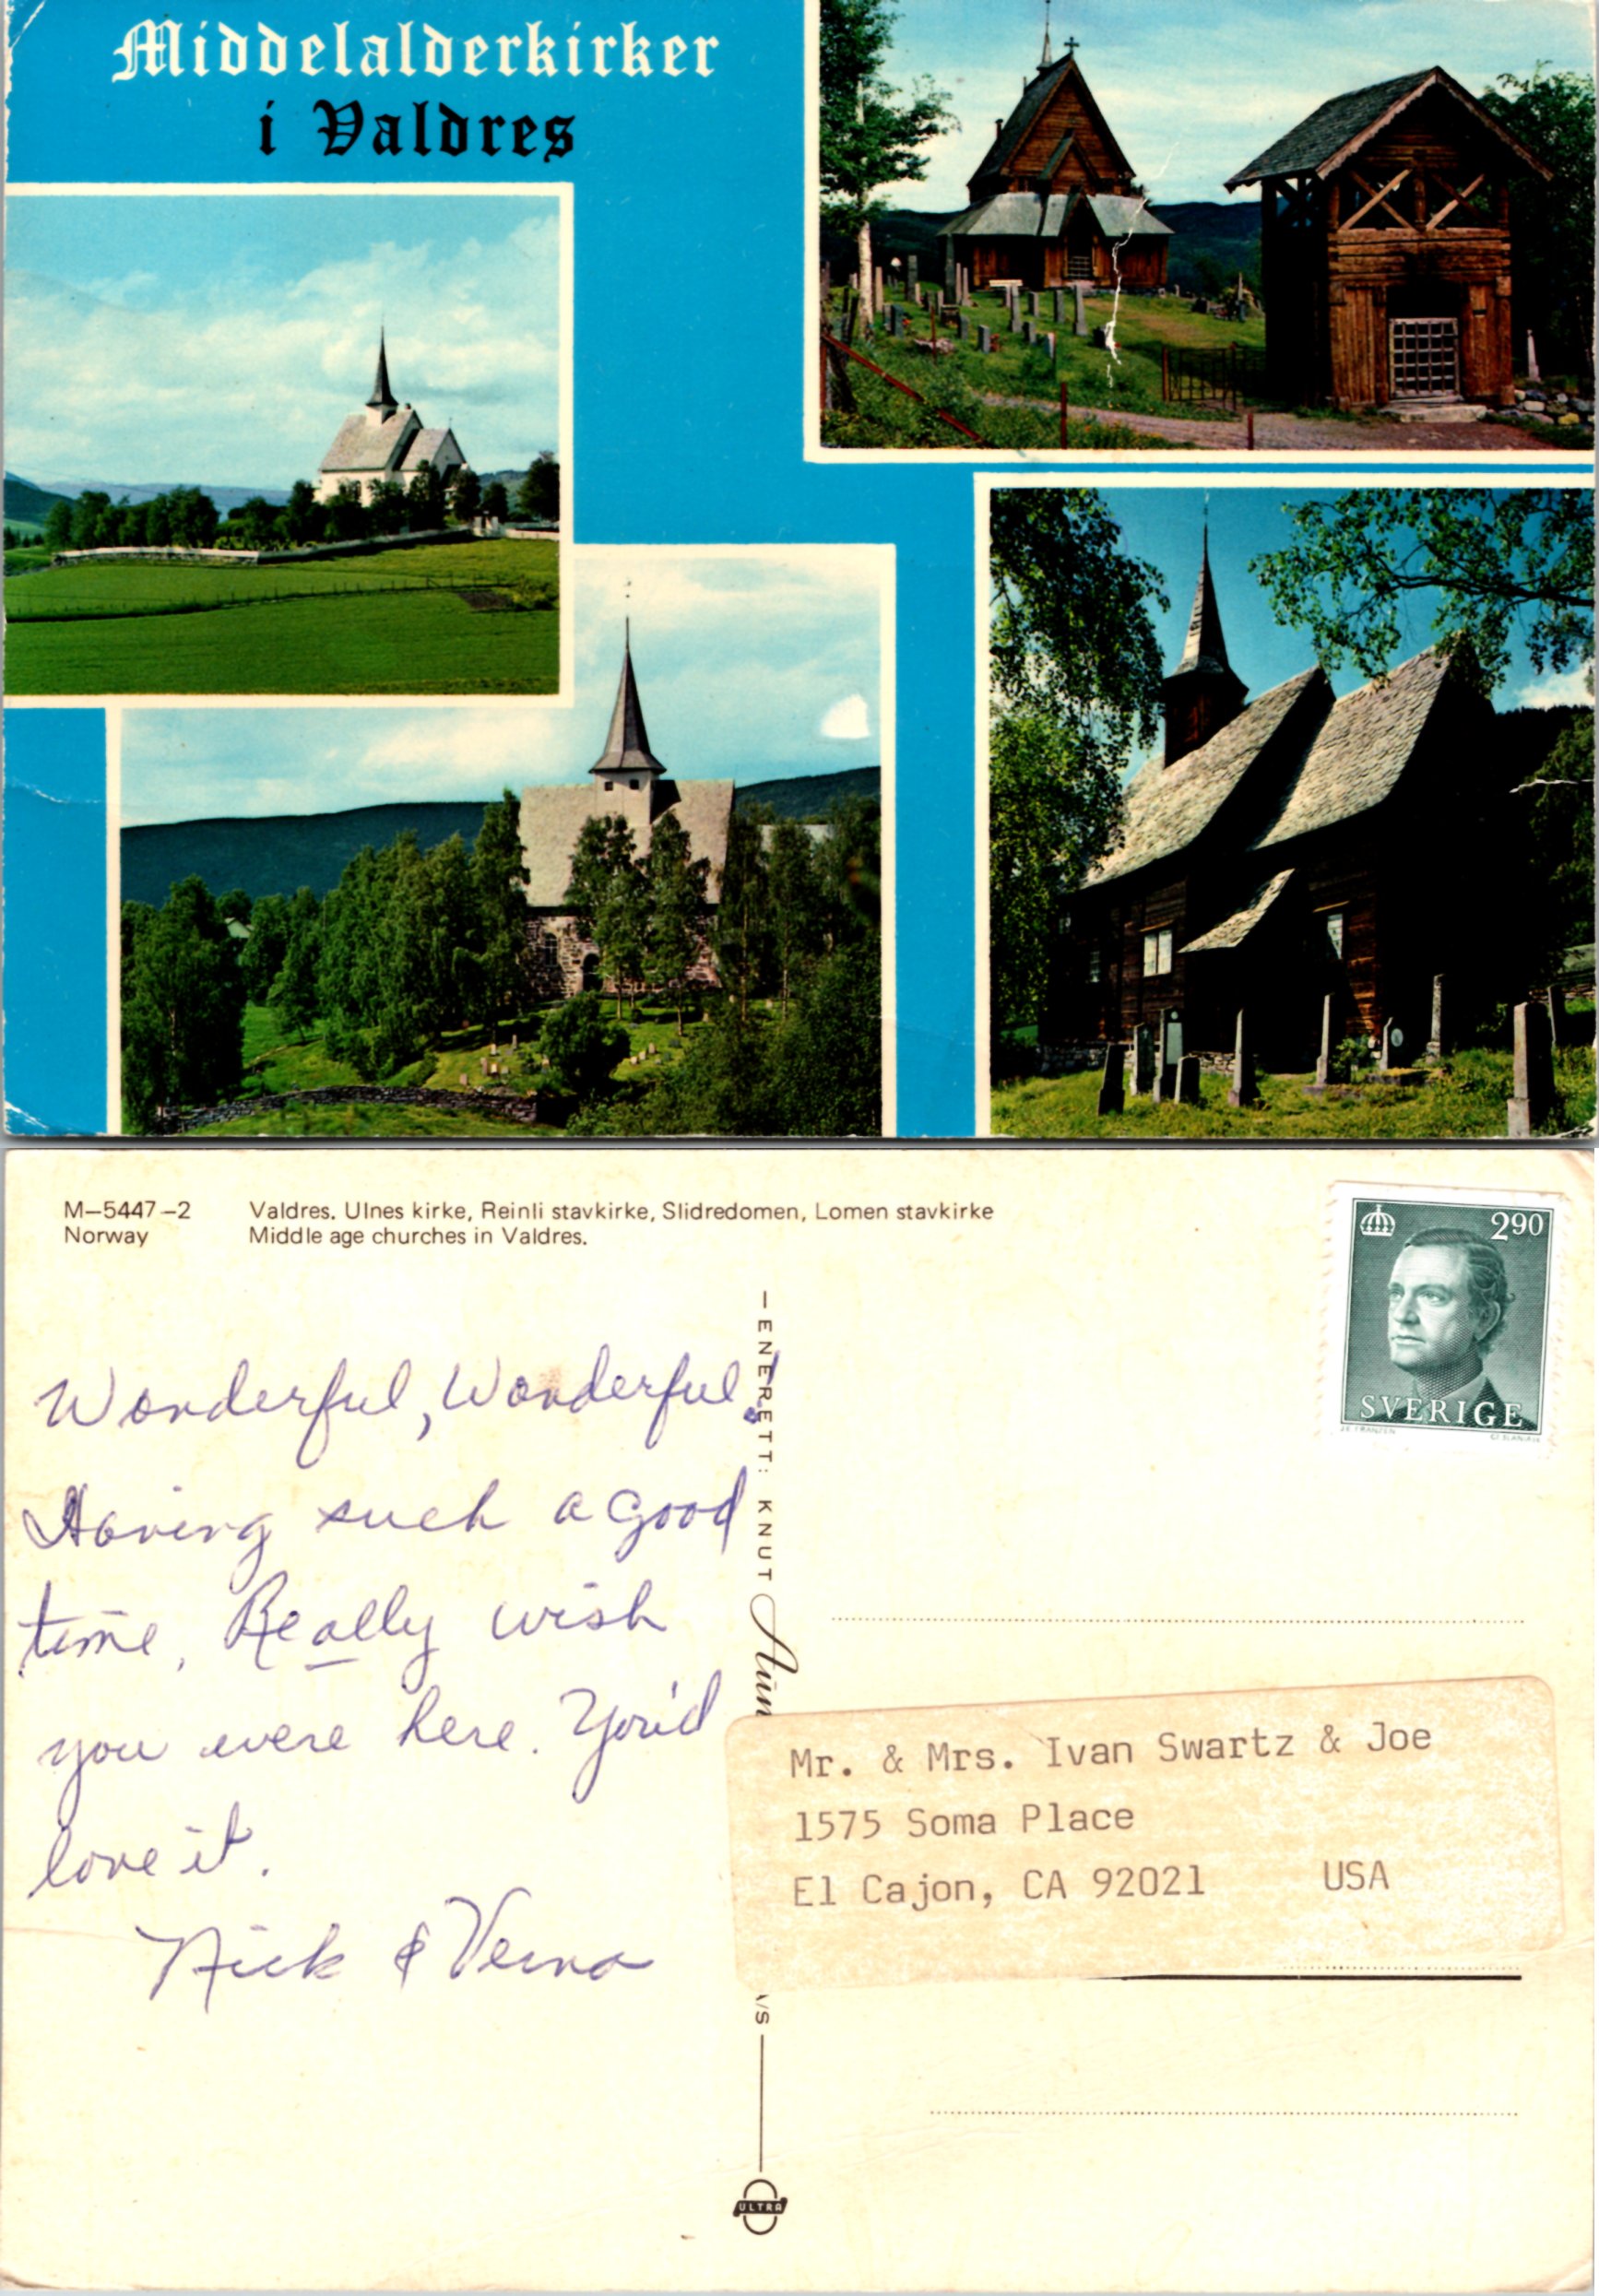 Middelalderkirker
i Valdres
M—5447—2 Valdres. Ulnes kirke, Reinli stavkirke, Slidredomen, Lomen stavkirke
Norway Middle age churches in Valdres.
290
SVERIGE
Wonderful, Wonderful!
Having such a good
time, Really wish
you were here. You'd
love it.
Nick & Verna
— ENERETT: KNUT Aun
A/S
ULTRA
Mr. & Mrs. Ivan Swartz & Joe
1575 Soma Place
El Cajon, CA 92021 USA